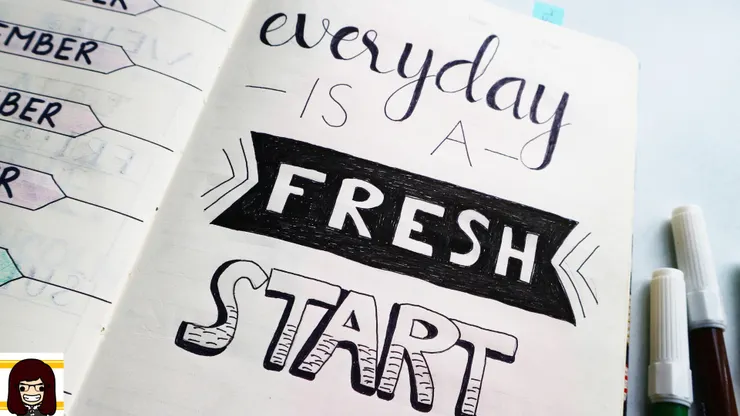 EMBER
BER
R
everyday
- IS A -
FRESH
START